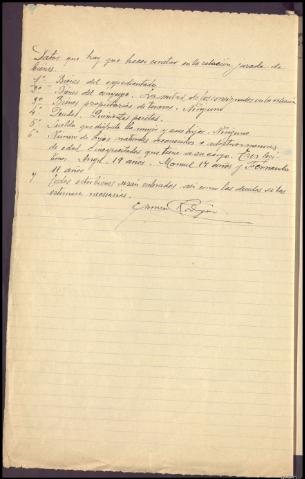 Datos que hay que hacer constar en la relación jurada de
bienes.
1º Bienes del expedientado
2º Bienes del conyuge. La mitad de los consignados en la relación
3º Bienes propietarios de terceros. Ninguno
4º Deudas. Quinientas pesetas.
5º Sueldo que disfruta la mujer y sus hijos. Ninguno
6º Numero de hijos naturales, reconocidos o adoptivos menores
de edad o incapacitados que tiene a su cargo. Tres legí-
timos. Angel 19 años. Manuel 14 años y Fernando
11 años
Estos bienes serán valorados, así como las deudas si las
estimara necesarias.
Carmen